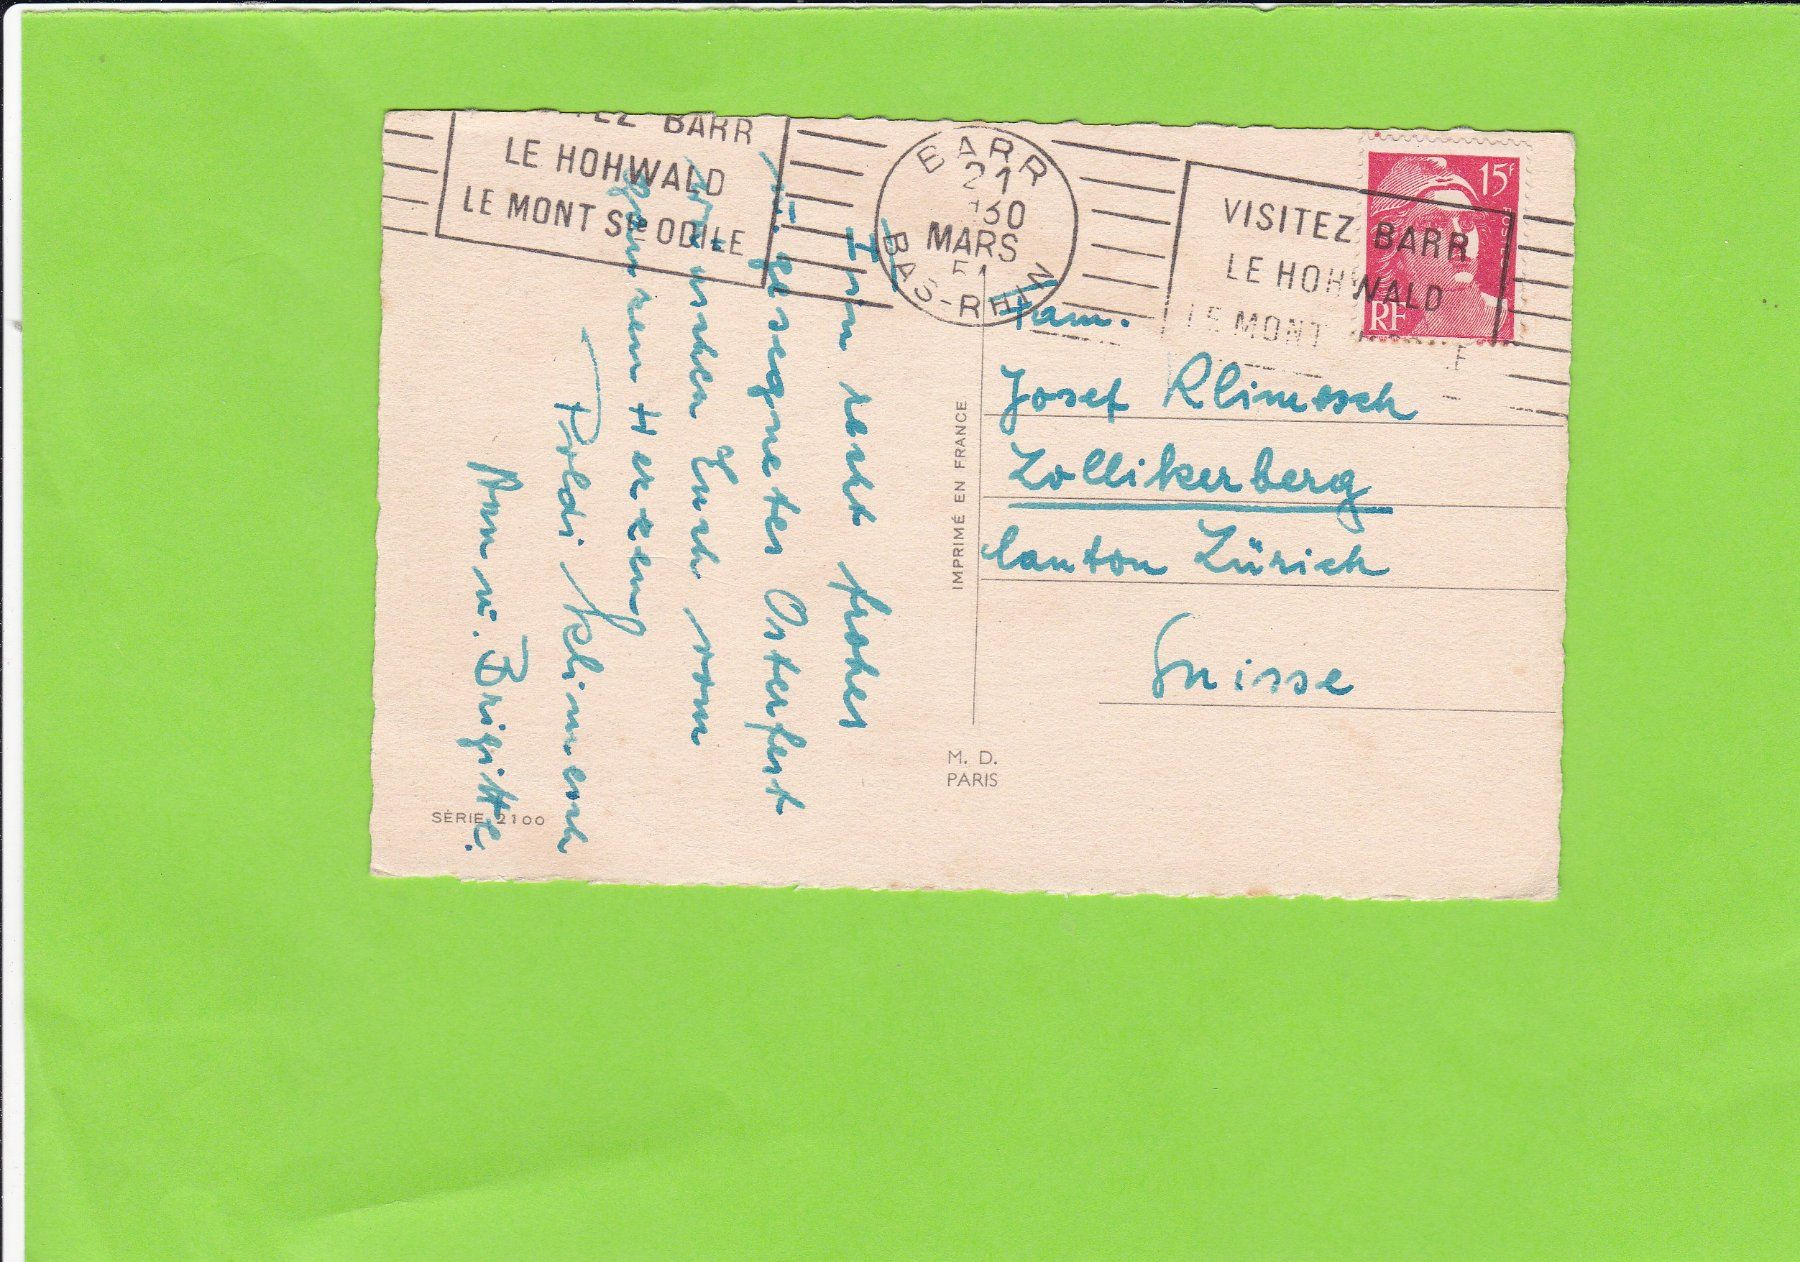 TEZ BARR
LE HOHWALD
LE MONT Ste ODILE
BARR
21
MARS
BAS-RHIN
VISITEZ BARR
LE HOHWALD
LE MONT
15f
RF
Ein recht frohes
u. gesegnetes Osterfest
wünschen Euch von
ganzem Herzen
Poldi Klimesch
Ann u. Brigitte.
SÉRIE 2100
IMPRIMÉ EN FRANCE
M. D.
PARIS
Fam.
Josef Klimesch
Zollikerberg
Canton Zürich
Suisse